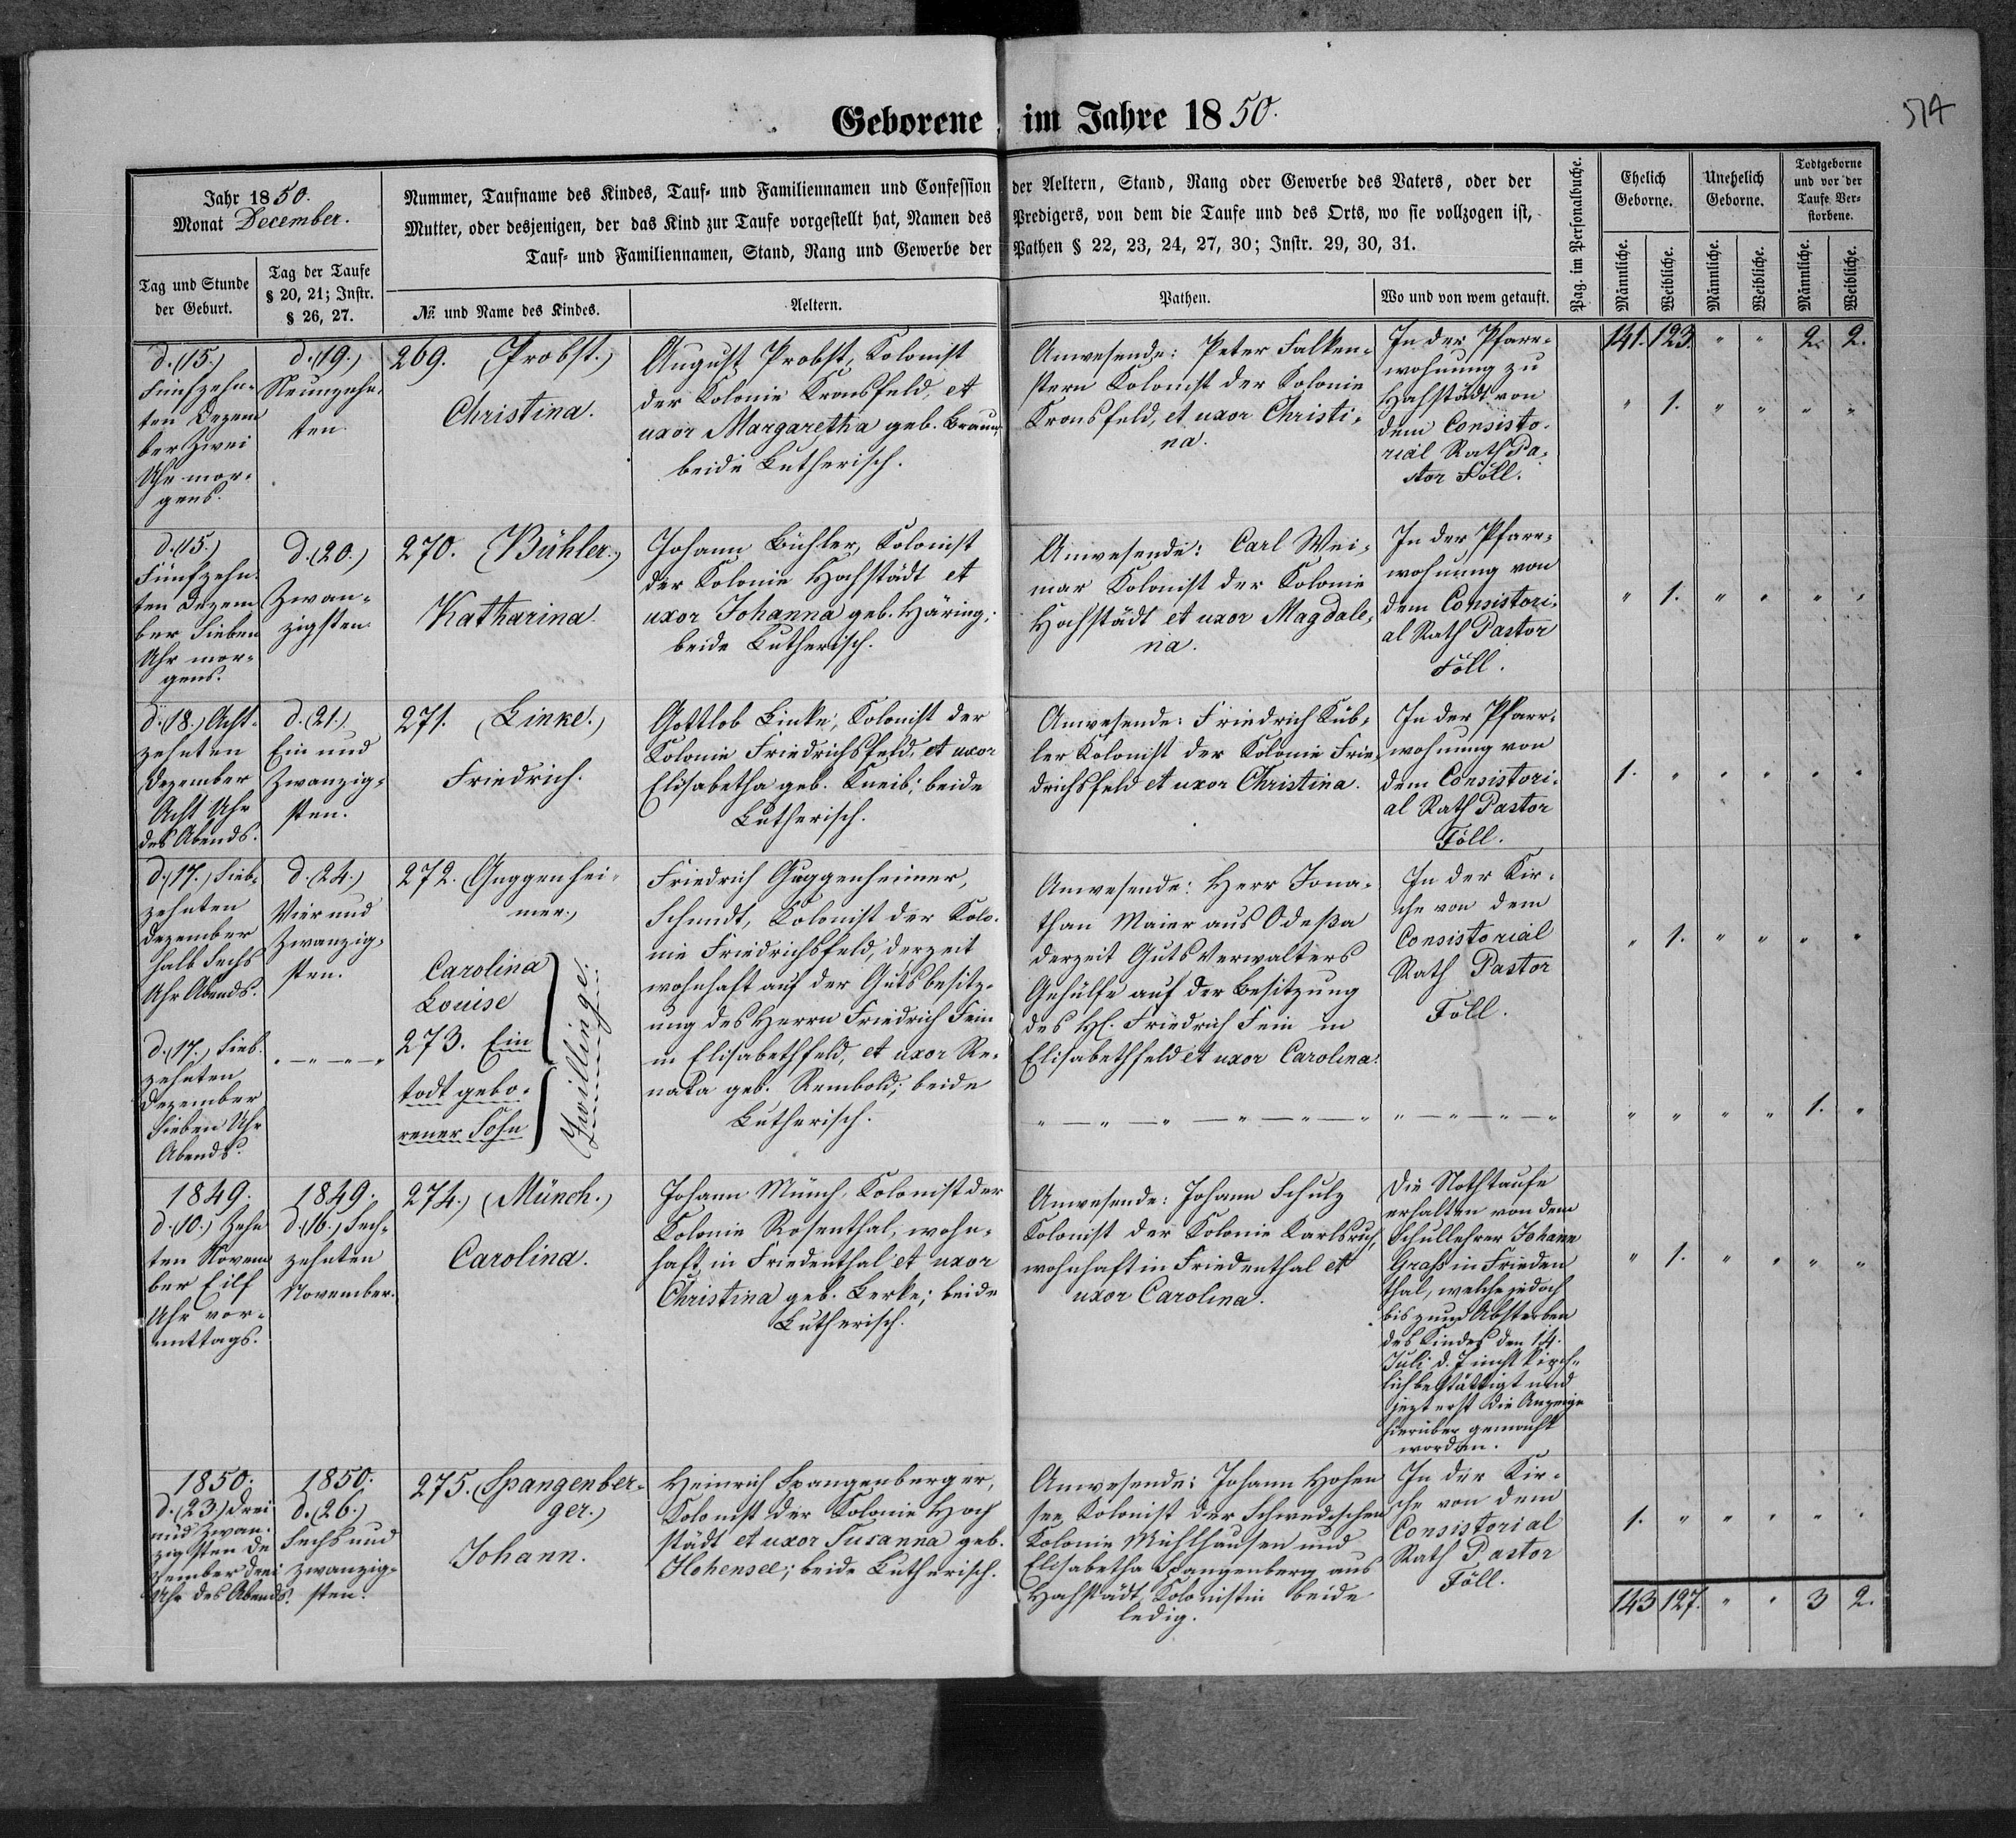 574
Geborene im Jahre 1850.
Jahr 1850.
Monat December.
Nummer, Taufname des Kindes, Tauf- und Familiennamen und Confession der Aeltern, Stand, Rang oder Gewerbe des Vaters, oder der
Mutter, oder desjenigen, der das Kind zur Taufe vorgestellt hat, Namen des Predigers, von dem die Taufe und des Orts, wo sie vollzogen ist,
Tauf- und Familiennamen, Stand, Rang und Gewerbe der Pathen § 22, 23, 24, 27, 30; Instr. 29, 30, 31.
Tag und Stunde
der Geburt.
Tag der Taufe
§ 20, 21; Instr.
§ 26, 27.
№ und Name des Kindes.
Aeltern.
Pathen.
Wo und von wem getauft.
Pag. im Personalbuche.
Ehelich
Geborne.
Unehelich
Geborne.
Todtgeborne
und vor der
Taufe Ver-
storbene.
Männliche.
Weibliche.
Männliche.
Weibliche.
Männliche.
Weibliche.
141. 123. " " 2. 2.
d. (15.)
Fünfzehn-
ten Dezem
ber Zwei
Uhr mor-
gens.
d. (19.)
Neunzehn-
ten.
269. (Probst.)
Christina.
August Probst, Kolonist
der Kolonie Kronsfeld, et
uxor Margaretha geb. Braun,
beide Lutherisch.
Anwesende: Peter Falken-
stern Kolonist der Kolonie
Kronsfeld, et uxor Christi-
na.
In der Pfarr-
wohnung zu
Hochstädt von
dem Consisto-
rial Rath Pa-
stor Föll.
" 1. " " " "
d. (15.)
Fünfzehn-
ten Dezem
ber Sieben
Uhr mor-
gens.
d. (20.)
Zwan-
zigsten.
270. (Bühler.)
Katharina.
Johann Bühler, Kolonist
der Kolonie Hochstädt et
uxor Johanna geb. Häring;
beide Lutherisch.
Anwesende: Carl Wei-
mar Kolonist der Kolonie
Hochstädt et uxor Magdale-
na.
In der Pfarr-
wohnung von
dem Consistori-
al Rath Pastor
Föll.
" 1. " " " "
d. (18.) Acht-
zehnten
Dezember
Acht Uhr
des Abends.
d. (21.)
Ein und
Zwanzig-
sten.
271. (Linke.)
Friedrich.
Gottlob Linke, Kolonist der
Kolonie Friedrichsfeld, et uxor
Elisabetha geb. Kneib; beide
Lutherisch.
Anwesende: Friedrich Küb-
ler Kolonist der Kolonie Frie-
drichsfeld et uxor Christina.
In der Pfarr-
wohnung von
dem Consistori-
al Rath Pastor
Föll.
1. " " " " "
d. (17.) Sieb-
zehnten
Dezember
halb Sechs
Uhr Abends.
d. (24.)
Vier und
Zwanzig-
sten.
272. (Guggenhei-
mer.)
Carolina
Louise
Zwillinge.
Friedrich Guggenheimer,
Schmidt, Kolonist der Kolo-
nie Friedrichsfeld, derzeit
wohnhaft auf der Gutsbesitz-
ung des Herrn Friedrich Fein
in Elisabethfeld, et uxor Re-
nata geb. Rembold; beide
Lutherisch.
Anwesende: Herr Jona-
than Maier aus Odeßa
derzeit Guts Verwalters
Gehülfe auf der Besitzung
des H. Friedrich Fein in
Elisabethfeld et uxor Carolina.
In der Kir-
che von dem
Consistorial
Rath Pastor
Föll.
" 1. " " " "
d. (17.) Sieb-
zehnten
Dezember
Sieben Uhr
Abends.
" — " — " — "
273. Ein
todt gebo-
rener Sohn
" — " — " — " — " — " " — " — " — "
" " " " 1. "
1849.
d. (10.) Zehn
ten Novem
ber Eilf
Uhr vor-
mittags.
1849.
d. (16.) Sech-
zehnten
November.
274.) (Münch.)
Carolina.
Johann Münch, Kolonist der
Kolonie Rosenthal, wohn-
haft in Friedenthal et uxor
Christina geb. Lerke; beide
Lutherisch.
Anwesende: Johann Schulz
Kolonist der Kolonie Karlsruh,
wohnhaft in Friedenthal et
uxor Carolina.
Die Nothtaufe
erhalten von dem
Schullehrer Johann
Graß in Frieden
thal, welche jedoch
bis zum Absterben
des Kindes den 14.
Juli d. J nicht kirch-
lich bestättigt und
jezt erst die Anzeige
hierüber gemacht
worden.
" 1. " " " "
1850.
d. (23) Drei
und Zwan-
zigsten De
zember drei
Uhr des Abends.
1850.
d. (26.)
Sechs und
Zwanzig-
sten.
275. (Spangenber-
ger.)
Johann.
Heinrich Spangenberger,
Kolonist der Kolonie Hoch
städt et uxor Susanna geb.
Hohensee; beide Lutherisch.
Anwesende: Johann Hohen
see, Kolonist der Schwedischen
Kolonie Mühlhausen und
Elisabetha Spangenberg aus
Hochstädt, Kolonistin beide
ledig.
In der Kir-
che von dem
Consistorial
Rath Pastor
Föll.
1. " " " " "
143 127. " " 3 2.